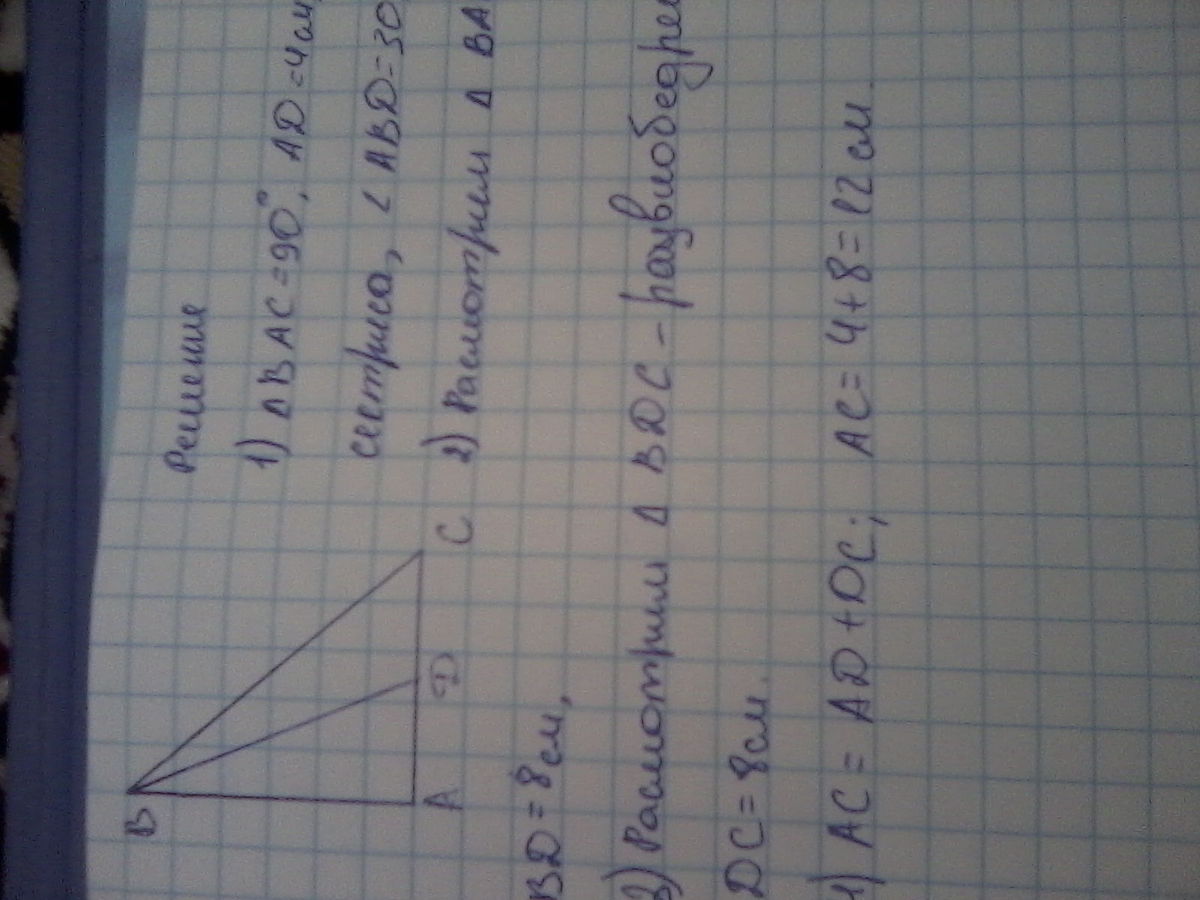 Решение
1) Δ BAC = 90°, AD = 4 см,
сектриса, < ABD = 30
B
A
D
C
2) Расмотрим Δ BA
BD = 8 см,
3) Расмотрим Δ BDC – равнобедрен
DC = 8 см.
4) AC = AD + DC; AC = 4 + 8 = 12 см.